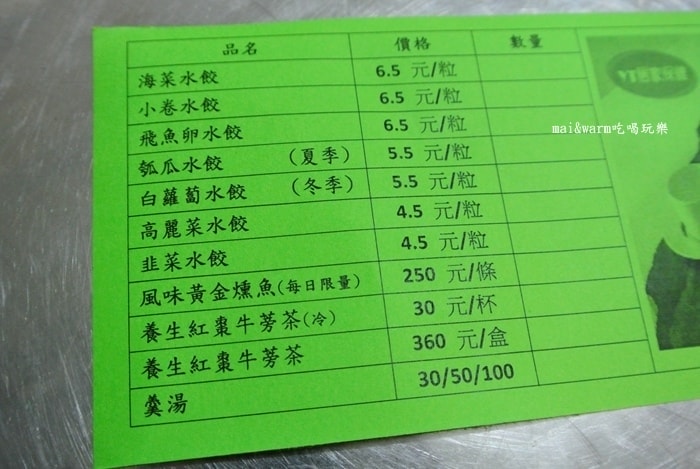 品名 價格 數量
海菜水餃 6.5 元/粒
小卷水餃 6.5 元/粒
飛魚卵水餃 6.5 元/粒
瓠瓜水餃 （夏季） 5.5 元/粒
白蘿蔔水餃 （冬季） 5.5 元/粒
高麗菜水餃 4.5 元/粒
韭菜水餃 4.5 元/粒
風味黃金燻魚(每日限量) 250 元/條
養生紅棗牛蒡茶(冷) 30 元/杯
養生紅棗牛蒡茶 360 元/盒
羹湯 30/50/100
mai&warm吃喝玩樂